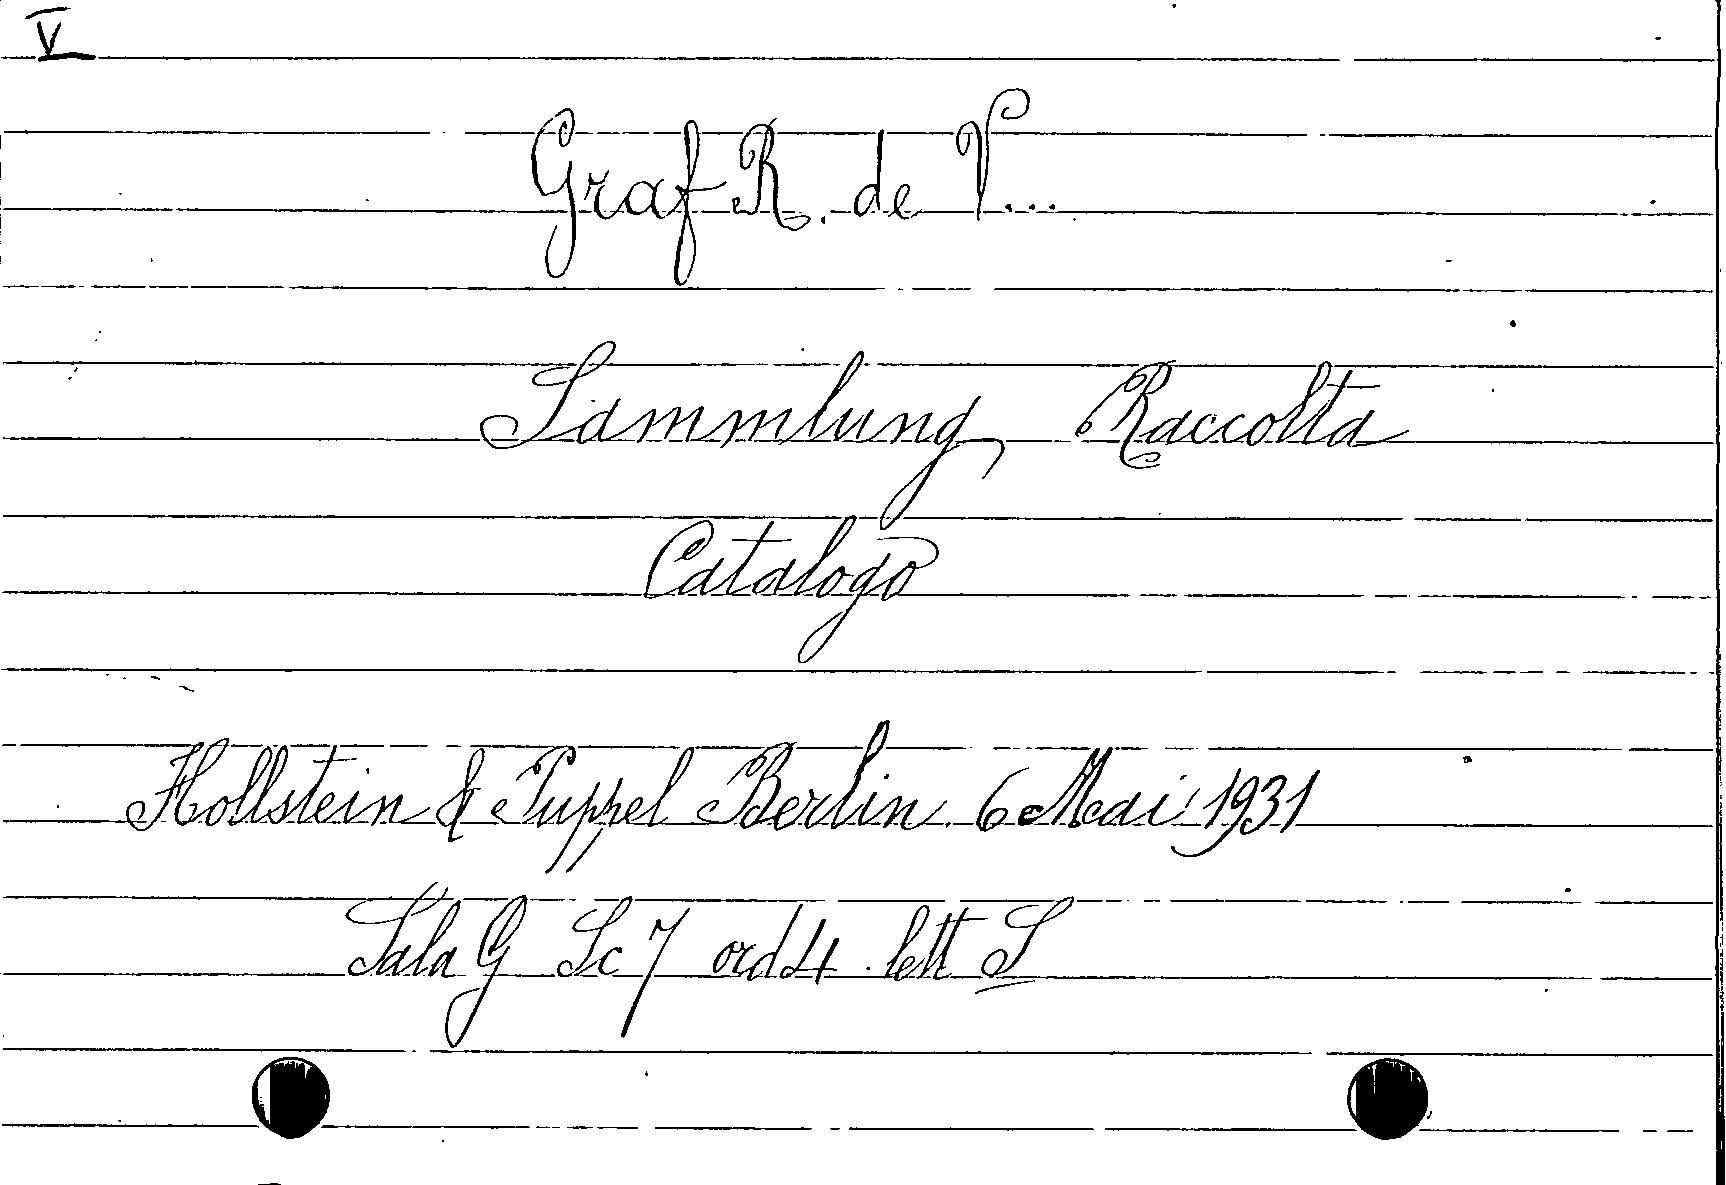 V
Graf R. de V...
Sammlung, Raccolta
Catalogo
Hollstein & Puppel Berlin. 6 Mai 1931
Sala G Sc 7 ord 4. lett S